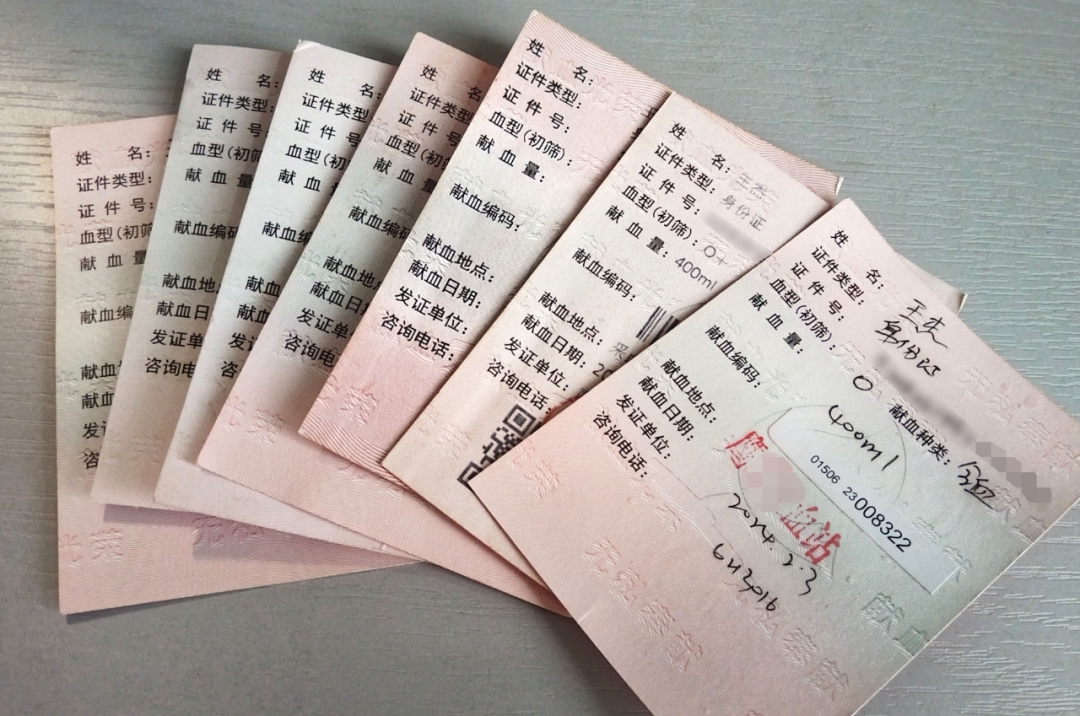 姓 名:
证件类型:
证 件 号:
血型(初筛
献 血 量
献血编
献血
献血
发证
咨
姓 名:
证件类型:
证 件 号:
血型(初筛
献 血 量
献血编码
献血地
献血日
发证单
咨询电
姓 名:
证件类型
证 件 号
血型(初筛
献 血 量
献血编
献血地点
献血日
发证单
咨询电
姓 名:
证件类型:
证 件 号:
血型(初
献 血 量
献血编码
献血地点
献血日期
发证单位
咨询电话
姓 名:
证件类型:
证 件 号:
血型(初筛):
献 血 量:
献血编码:
献血地点:
献血日期:
发证单位:
咨询电话:
姓 名: 王杰
证件类型: 身份证
证 件 号:
血型(初筛): O+
献 血 量: 400ml
献血编码:
献血地点: 采
献血日期: 20
发证单位:
咨询电话:
姓 名: 王杰
证件类型: 身份证
证 件 号:
血型(初筛): O 献血种类: 全血
献 血 量: 400ml
献血编码: 01506 23008322
献血地点: 血站
献血日期: 2024.2.3
发证单位:
咨询电话: 6213016
无偿献血
光荣
无偿奉献